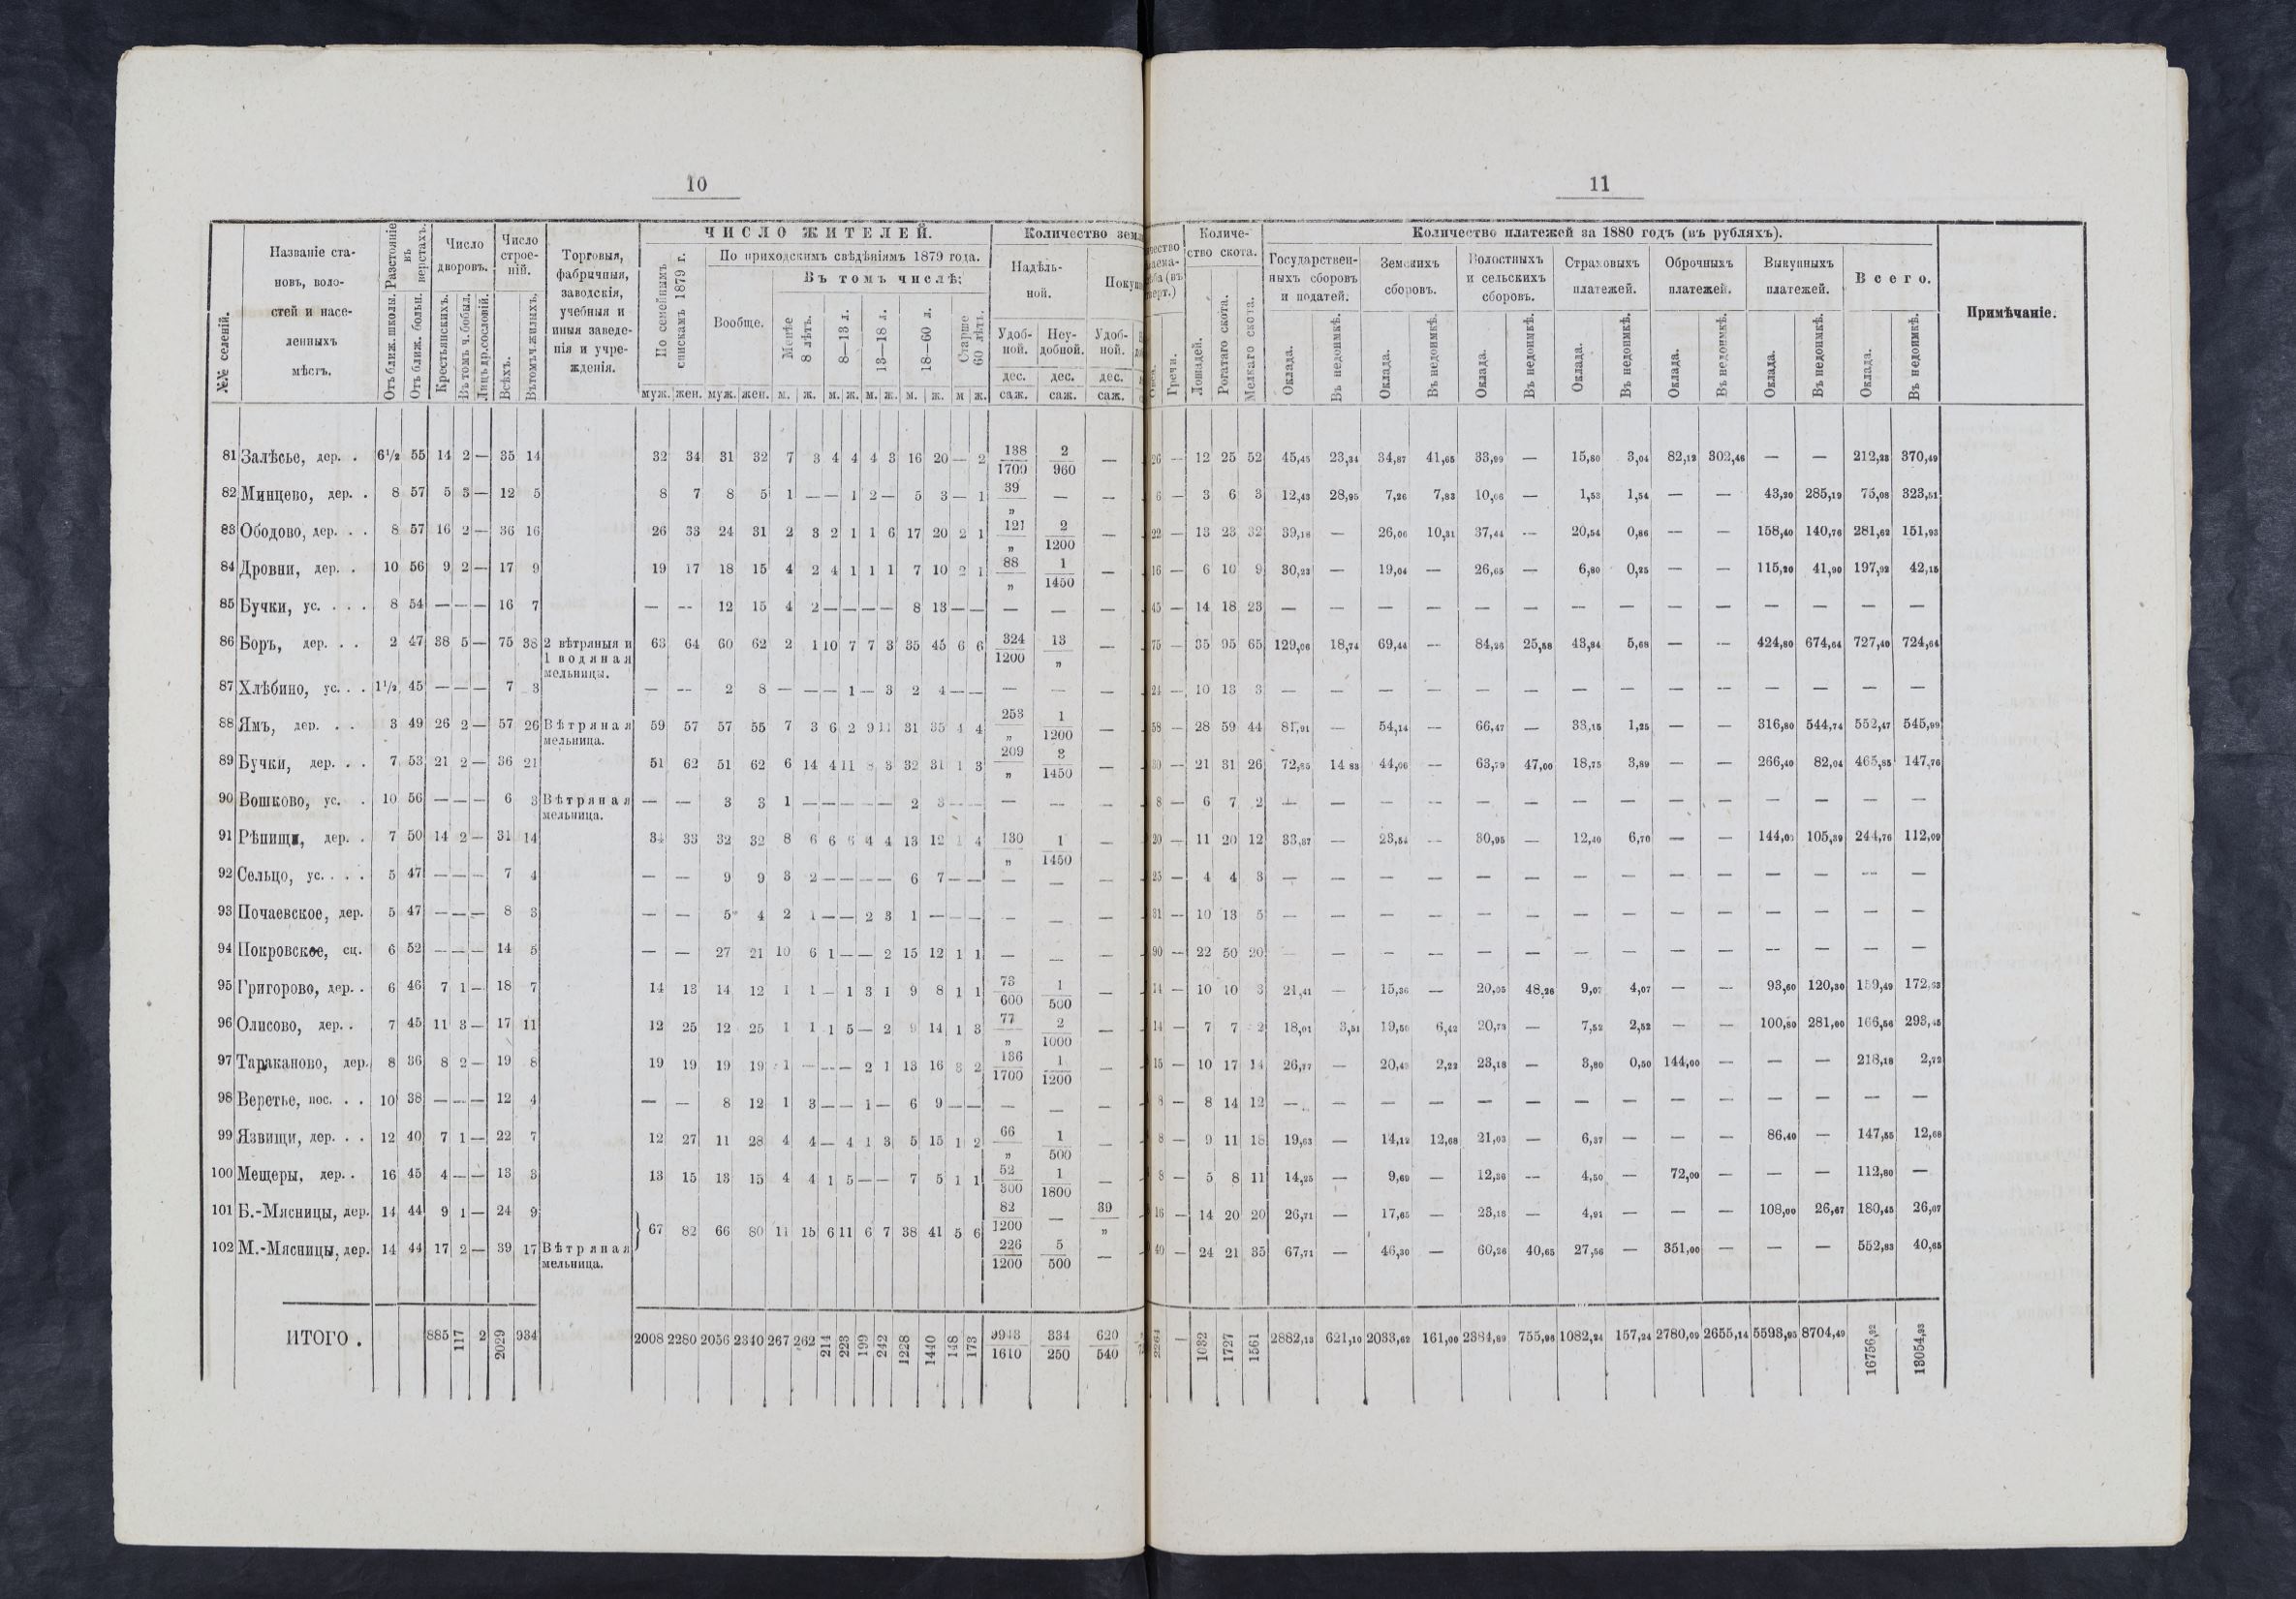 10
№№ селеній.
Названіе становъ, волостей и населенныхъ мѣстъ.
Разстояніе въ верстахъ.
Отъ ближ. школы.
Отъ ближ. больн.
Число дворовъ.
Крестьянскихъ.
Въ томъ ч. бобыл.
Лицъ др. сословій.
Число строеній.
Всѣхъ.
Въ томъ ч. жилыхъ.
Торговыя, фабричныя, заводскія, учебныя и иныя заведенія и учрежденія.
ЧИСЛО ЖИТЕЛЕЙ.
По семейнымъ спискамъ 1879 г.
По приходскимъ свѣдѣніямъ 1879 года.
Вообще.
Въ томъ числѣ:
Менѣе 8 лѣтъ.
8—13 л.
13—18 л.
18—60 л.
Старше 60 лѣтъ.
муж. жен. муж. жен. м. ж. м. ж. м. ж. м. ж. м ж.
Количество зем
Надѣльной.
Удобной.
Неудобной.
Удобной.
дес. дес. дес.
саж. саж. саж.
81 Залѣсье, дер. . 6½ 55 14 2 — 35 14 32 34 31 32 7 3 4 4 4 3 16 20 — 2 138/1700 2/960 —
82 Минцево, дер. . 8 57 5 3 — 12 5 8 7 8 5 1 — — 1 2 — 5 3 — 1 39/„ — —
83 Ободово, дер. . . 8 57 16 2 — 36 16 26 33 24 31 2 3 2 1 1 6 17 20 2 1 121/„ 2/1200 —
84 Дровни, дер. . 10 56 9 2 — 17 9 19 17 18 15 4 2 4 1 1 1 7 10 2 1 88/„ 1/1450 —
85 Бучки, ус. . . . 8 54 — — — 16 7 — — 12 15 4 2 — — — — 8 13 — — — — —
86 Боръ, дер. . . 2 47 38 5 — 75 38 2 вѣтряныя и 1 водяная мельницы. 63 64 60 62 2 1 10 7 7 3 35 45 6 6 324/1200 13/„ —
87 Хлѣбино, ус. . . 1½ 45 — — — 7 3 — — 2 8 — — — 1 — 3 2 4 — — — — —
88 Ямъ, дер. . . 3 49 26 2 — 57 26 Вѣтряная мельница. 59 57 57 55 7 3 6 2 9 11 31 35 4 4 253/„ 1/1200 —
89 Бучки, дер. . . 7 53 21 2 — 36 21 51 62 51 62 6 14 4 11 8 3 32 31 1 3 209/„ 3/1450 —
90 Вошково, ус. . 10 56 — — — 6 3 Вѣтряная мельница. — — 3 3 1 — — — — — 2 3 — — — — —
91 Рѣпищи, дер. . 7 50 14 2 — 31 14 34 33 32 32 8 6 6 6 4 4 13 12 1 4 130/„ 1/1450 —
92 Сельцо, ус. . . . 5 47 — — — 7 4 — — 9 9 3 2 — — — — 6 7 — — — — —
93 Почаевское, дер. 5 47 — — — 8 3 — — 5 4 2 1 — — 2 3 1 — — — — — —
94 Покровское, сц. 6 52 — — — 14 5 — — 27 21 10 6 1 — — 2 15 12 1 1 — — —
95 Григорово, дер. . 6 46 7 1 — 18 7 14 13 14 12 1 1 — 1 3 1 9 8 1 1 73/600 1/500 —
96 Олисово, дер. . 7 45 11 3 — 17 11 12 25 12 25 1 1 1 5 — 2 9 14 1 3 77/„ 2/1000 —
97 Тараканово, дер. 8 36 8 2 — 19 8 19 19 19 19 1 — — — 2 1 13 16 3 2 136/1700 1/1200 —
98 Веретье, пос. . . 10 38 — — — 12 4 — — 8 12 1 3 — — 1 — 6 9 — — — — —
99 Язвищи, дер. . . 12 40 7 1 — 22 7 12 27 11 28 4 4 — 4 1 3 5 15 1 2 66/„ 1/500 —
100 Мещеры, дер. . 16 45 4 — — 13 3 13 15 13 15 4 4 1 5 — — 7 5 1 1 52/300 1/1800 —
101 Б.-Мясницы, дер. 14 44 9 1 — 24 9 } 67 82 66 80 11 15 6 11 6 7 38 41 5 6 82/1200 — 39/„
102 М.-Мясницы, дер. 14 44 17 2 — 39 17 Вѣтряная мельница. 226/1200 5/500 —
ИТОГО . 885 117 2 2029 934 2008 2280 2056 2340 267 262 214 223 199 242 1228 1440 148 173 9943/1610 334/250 620/540
11
Гречи.
Количество скота.
Лошадей.
Рогатаго скота.
Мелкаго скота.
Количество платежей за 1880 годъ (въ рубляхъ).
Государственныхъ сборовъ и податей.
Земскихъ сборовъ.
Волостныхъ и сельскихъ сборовъ.
Страховыхъ платежей.
Оброчныхъ платежей.
Выкупныхъ платежей.
Всего.
Оклада. Въ недоимкѣ. Оклада. Въ недоимкѣ. Оклада. Въ недоимкѣ. Оклада. Въ недоимкѣ. Оклада. Въ недоимкѣ. Оклада. Въ недоимкѣ. Оклада. Въ недоимкѣ.
Примѣчаніе.
26 — 12 25 52 45,45 23,34 34,87 41,65 33,99 — 15,80 3,04 82,12 302,46 — — 212,23 370,49
6 — 3 6 3 12,43 28,95 7,26 7,83 10,06 — 1,53 1,54 — — 43,20 285,19 75,08 323,51
22 — 13 23 32 39,18 — 26,06 10,31 37,44 — 20,54 0,86 — — 158,40 140,76 281,62 151,93
16 — 6 10 9 30,23 — 19,04 — 26,65 — 6,80 0,25 — — 115,20 41,90 197,92 42,15
45 — 14 18 23 — — — — — — — — — — — — — —
75 — 35 95 65 129,06 18,74 69,44 — 84,26 25,58 43,84 5,68 — — 424,80 674,64 727,40 724,64
24 — 10 13 3 — — — — — — — — — — — — — —
58 — 28 59 44 81,91 — 54,14 — 66,47 — 33,15 1,25 — — 316,80 544,74 552,47 545,99
30 — 21 31 26 72,85 14 83 44,06 — 63,79 47,00 18,75 3,89 — — 266,40 82,04 465,85 147,76
8 — 6 7 2 — — — — — — — — — — — — — —
20 — 11 20 12 33,87 — 23,54 — 30,95 — 12,40 6,70 — — 144,00 105,39 244,76 112,09
25 — 4 4 3 — — — — — — — — — — — — — —
31 — 10 13 5 — — — — — — — — — — — — — —
90 — 22 50 20 — — — — — — — — — — — — — —
14 — 10 10 3 21,41 — 15,36 — 20,05 48,26 9,07 4,07 — — 93,60 120,30 159,49
14 — 7 7 2 18,01 3,51 19,50 6,42 20,73 — 7,52 2,52 — — 100,80 281,00 166,56 293,45
15 — 10 17 14 26,77 — 20,43 2,22 23,18 — 3,80 0,50 144,00 — — — 218,18 2,72
8 — 8 14 12 — — — — — — — — — — — — — —
8 — 9 11 18 19,63 — 14,12 12,68 21,03 — 6,37 — — — 86,40 — 147,55 12,68
8 — 5 8 11 14,25 — 9,69 — 12,36 — 4,50 — 72,00 — — — 112,80 —
16 — 14 20 20 26,71 — 17,65 — 23,18 — 4,91 — — — 108,00 26,67 180,45 26,67
40 — 24 21 35 67,71 — 46,30 — 60,26 40,65 27,56 — 351,00 — — — 552,83 40,65
2264 — 1032 1727 1561 2882,13 621,10 2033,62 161,00 2384,89 755,96 1082,24 157,24 2780,09 2655,14 5593,95 8704,49 16756,92 13054,93